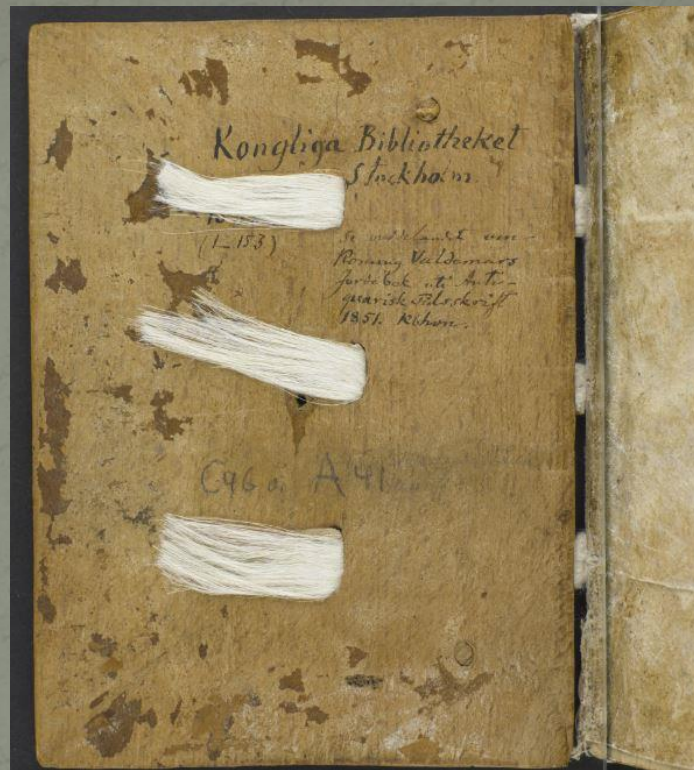 Kongliga Bibliotheket
Stockholm.
(1_153)
Se meddelandet om
Konung Valdemars
Jordebok uti Anti-
quarisk Tidsskrift
1851. Kbhvn.
C96 a. A 41